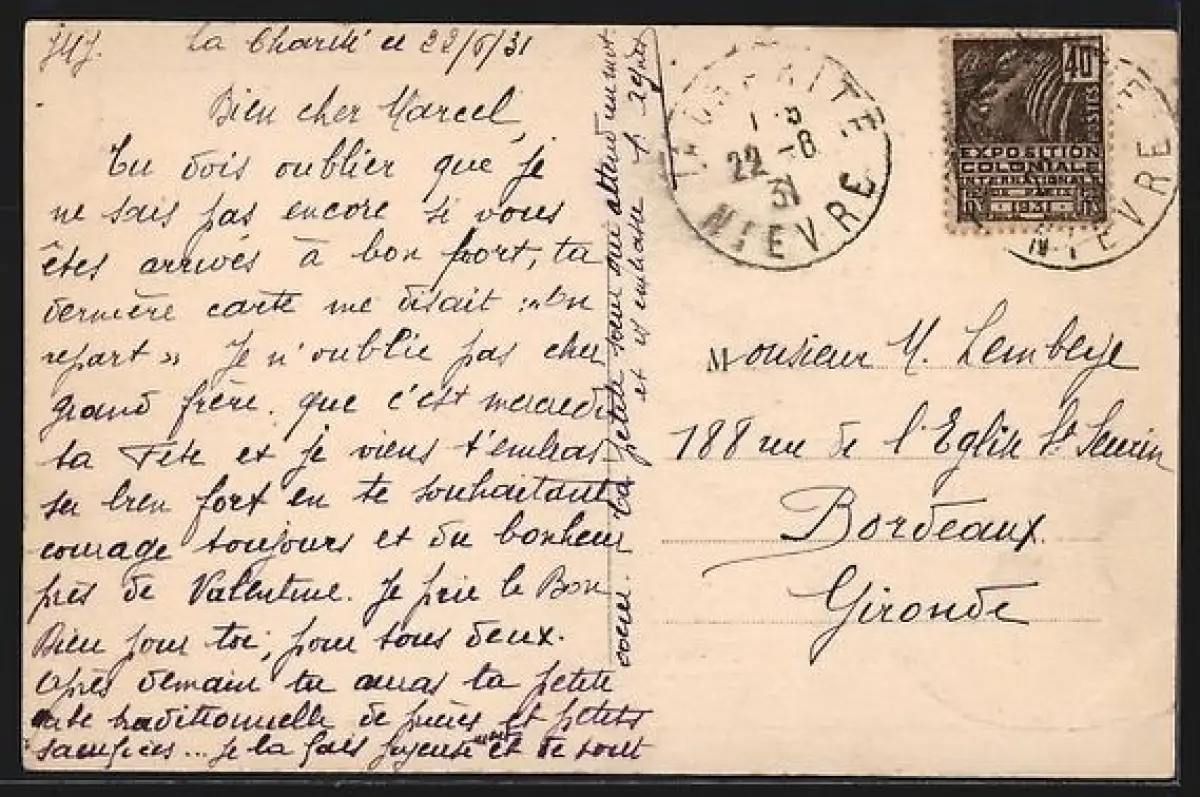 JMJ. La Charité le 22/6/31
Bien cher Marcel,
Tu dois oublier que je
ne sais pas encore si vous
êtes arrivés à bon port, ta
dernière carte me disait : "On
repart" Je n'oublie pas cher
grand frère, que c'est mercredi
ta Fête et je viens t'embras-
ser bien fort en te souhaitant
courage toujours et du bonheur
près de Valentine. Je prie le Bon
Dieu pour toi, pour tous deux.
Après demain tu auras ta petite
traditionnelle de prières et petits
sacrifices... je la fais joyeuse et de tout
coeur. Ta petite soeur qui attend un mot
et t'embrasse
LA CHARITE
22 -6
31
NIEVRE
40c
POSTES
EXPOSITION
COLONIALE
INTERNATIONALE
PARIS
1931
NIEVRE
Monsieur M. Lembeye
188 rue de l'Eglise St Seurin
Bordeaux
Gironde